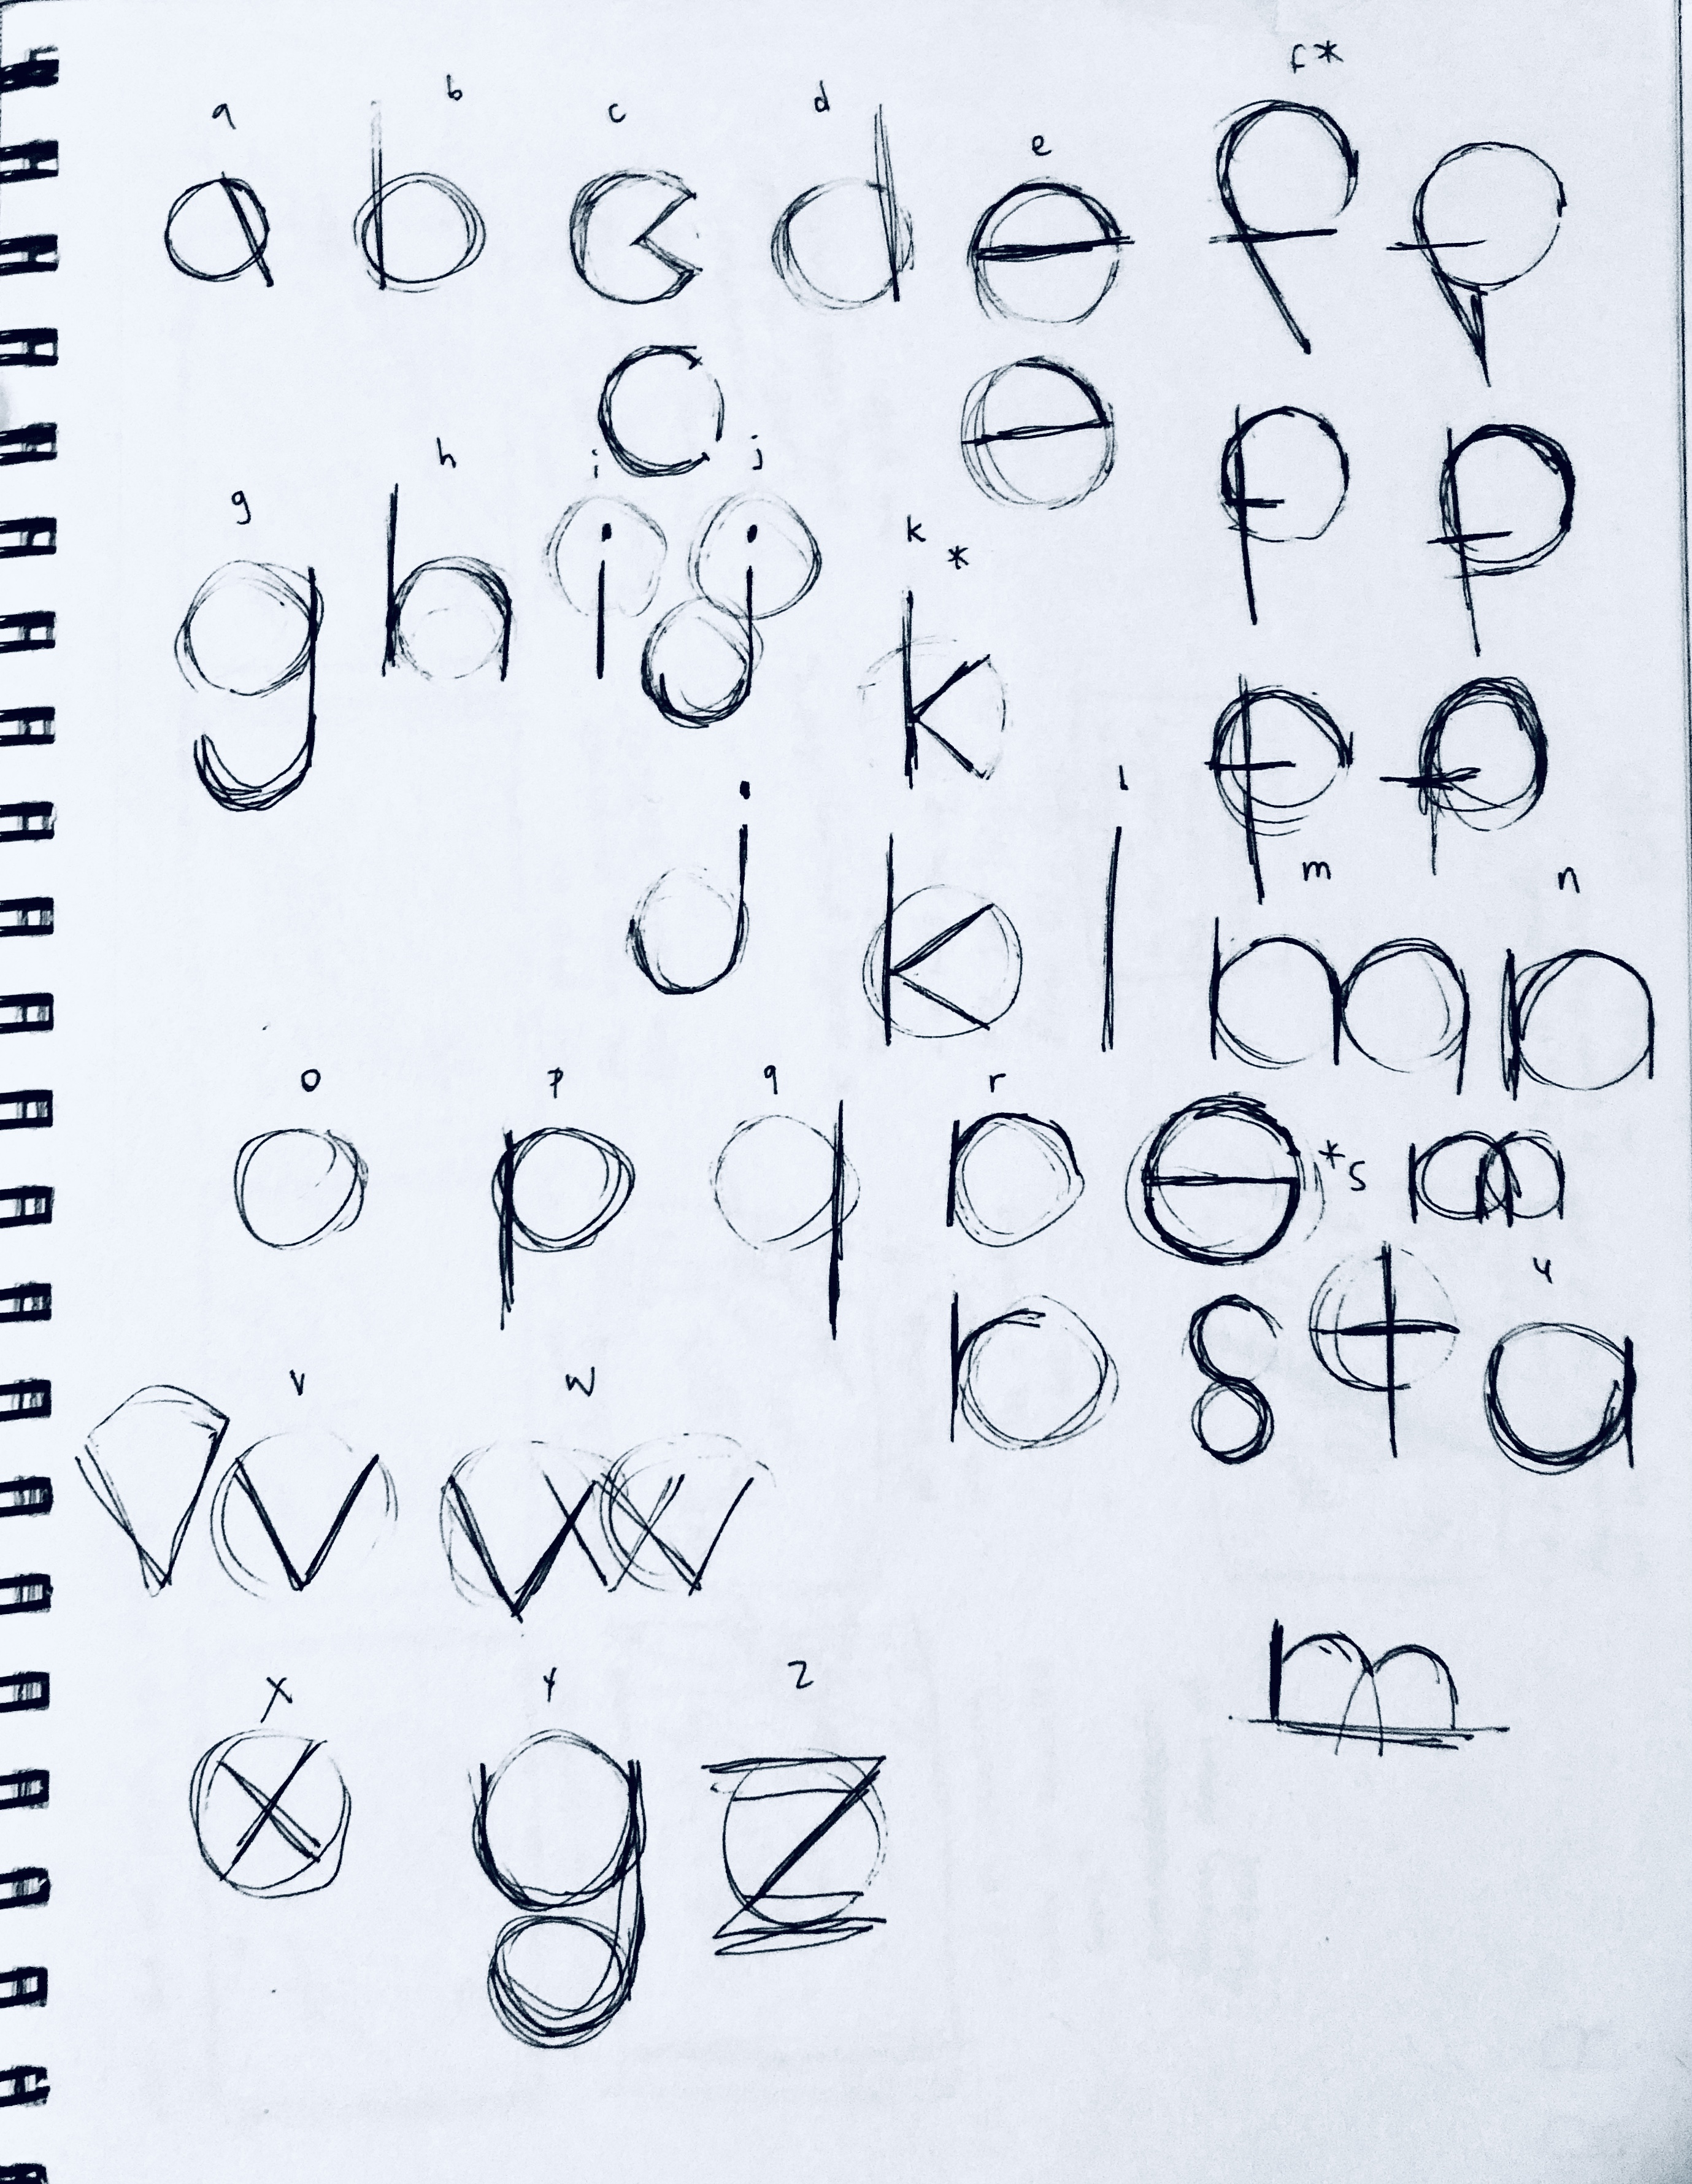 f*
a b c d e
a b c d e f f
c e f f
g h i j k *
g h i j k
f f
l m n
j k l m n
o p q r
o p q r s *s m
r s t u
u
v w
v v w
m
x y z
x y z